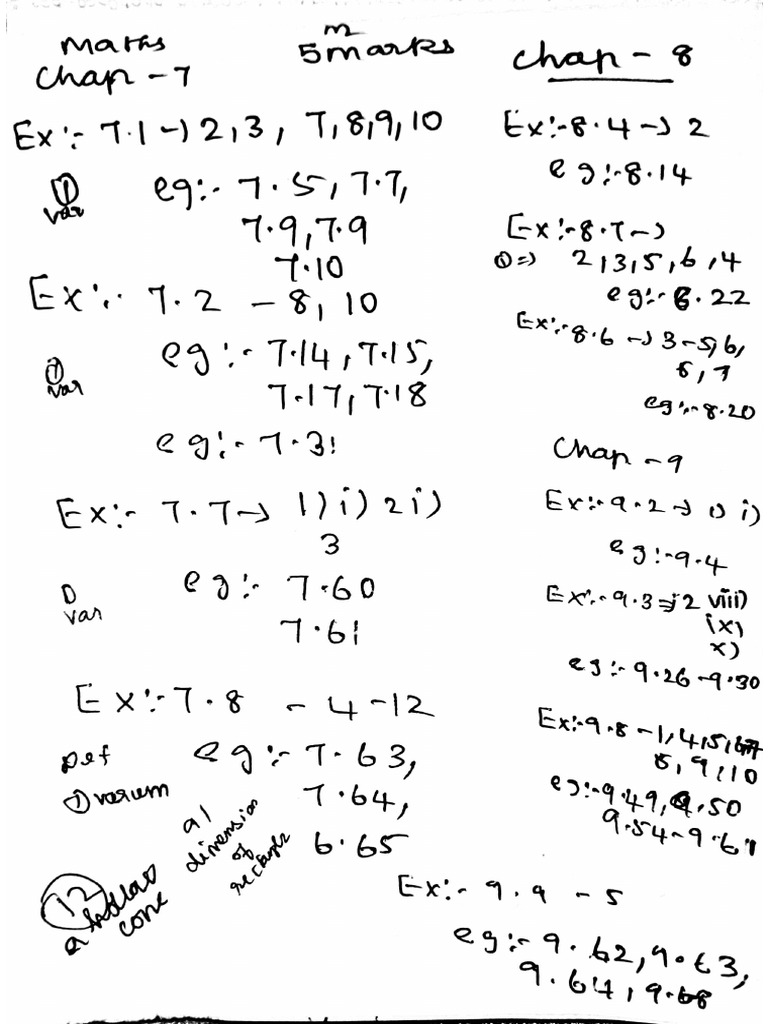 Maths
Chap - 7
m
5 marks
Ex:- 7.1 -> 2, 3, 7, 8, 9, 10
① var
eg:- 7.5, 7.7,
7.9, 7.9
7.10
Ex:- 7.2 - 8, 10
① var
eg:- 7.14, 7.15,
7.17, 7.18
eg:- 7.31
Ex:- 7.7 -> 1) i) 2 i)
3
var
eg:- 7.60
7.61
Ex:- 7.8 - 4 - 12
def
① varum
eg:- 7.63,
7.64,
6.65
12
a hollow
cone
a) dimension
of
rectangle
Chap - 8
Ex:- 8.4 -> 2
eg:- 8.14
Ex:- 8.7 ->
① => 2, 3, 5, 6, 4
eg:- 8.22
Ex:- 8.6 -> 3 - 5, 6,
5, 7
eg:- 8.20
Chap - 9
Ex:- 9.2 -> 1) i)
eg:- 9.4
Ex:- 9.3 => 2 viii)
ix)
x)
eg:- 9.26 - 9.30
Ex:- 9.8 - 1, 4, 5,
9, 10
eg:- 9.49, 9.50
9.54 - 9.61
Ex:- 9.9 - 5
eg:- 9.62, 9.63,
9.64, 9.68